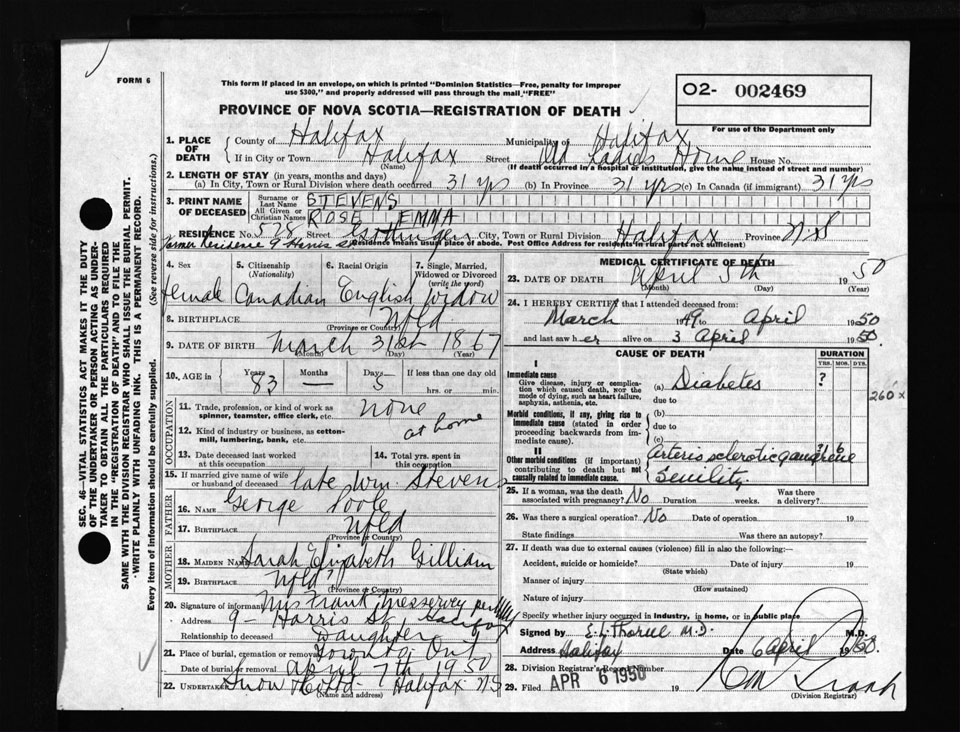 FORM 6
This form if placed in an envelope, on which is printed "Dominion Statistics—Free, penalty for improper
use $300," and properly addressed will pass through the mail "FREE"
PROVINCE OF NOVA SCOTIA—REGISTRATION OF DEATH
O2- 002469
For use of the Department only
SEC. 46—VITAL STATISTICS ACT MAKES IT THE DUTY
OF THE UNDERTAKER OR PERSON ACTING AS UNDER-
TAKER TO OBTAIN ALL THE PARTICULARS REQUIRED
IN THE "REGISTRATION OF DEATH" AND TO FILE THE
SAME WITH THE DIVISION REGISTRAR WHO SHALL ISSUE THE BURIAL PERMIT.
WRITE PLAINLY WITH UNFADING INK. THIS IS A PERMANENT RECORD.
Every item of information should be carefully supplied. (See reverse side for instructions.)
1. PLACE OF DEATH
County of Halifax Municipality of Halifax
If in City or Town Halifax Street Old Ladies Home House No.
(Name) (If death occurred in a hospital or institution, give the name instead of street and number)
2. LENGTH OF STAY (in years, months and days)
(a) In City, Town or Rural Division where death occurred 31 yrs (b) In Province 31 yrs (c) In Canada (if immigrant) 31 yrs
3. PRINT NAME OF DECEASED
Surname or Last Name STEVENS
All Given or Christian Names ROSE EMMA
RESIDENCE No. 528 Street Gottingen City, Town or Rural Division Halifax Province N.S
former Residence 9 Harris St
Residence means usual place of abode. Post Office Address for residents in rural parts not sufficient)
4. Sex
female
5. Citizenship (Nationality)
Canadian
6. Racial Origin
English
7. Single, Married, Widowed or Divorced (write the word)
widow
8. BIRTHPLACE Nfld
(Province or Country)
9. DATE OF BIRTH March 31st 1867
(Month) (Day) (Year)
10. AGE in Years 83 Months — Days 5 If less than one day old
hrs. or min.
OCCUPATION
11. Trade, profession, or kind of work as spinner, teamster, office clerk, etc. none
12. Kind of industry or business, as cotton-mill, lumbering, bank, etc. at home
13. Date deceased last worked at this occupation
14. Total yrs. spent in this occupation
15. If married give name of wife or husband of deceased late Wm. Stevens
FATHER
16. NAME George Poole
17. BIRTHPLACE Nfld
(Province or Country)
MOTHER
18. MAIDEN NAME Sarah Elizabeth Gilliam
19. BIRTHPLACE Nfld
(Province or Country)
20. Signature of informant Mrs Frank Messervey
Address 9 - Harris St Halifax
Relationship to deceased Daughter
21. Place of burial, cremation or removal Toronto Ont
Date of burial or removal April 7th 1950
22. UNDERTAKER Snow & Co Ltd Halifax NS
(Name and address)
MEDICAL CERTIFICATE OF DEATH
23. DATE OF DEATH April 5th 1950
(Month) (Day) (Year)
24. I HEREBY CERTIFY that I attended deceased from:
March 1949 to April 1950
and last saw her alive on 3 April 1950.
CAUSE OF DEATH
DURATION
YRS. MOS. DYS.
I
Immediate cause
Give disease, injury or complication which caused death, NOT the mode of dying, such as heart failure, asphyxia, asthenia, etc.
(a) Diabetes ?
due to
260 x
Morbid conditions, if any, giving rise to immediate cause (stated in order proceeding backwards from immediate cause).
(b)
due to
(c)
II
Other morbid conditions (if important) contributing to death but not causally related to immediate cause.
Arteriosclerotic gangrene
Senility.
25. If a woman, was the death associated with pregnancy? No Duration weeks. Was there a delivery?
26. Was there a surgical operation? No Date of operation 19
State findings Was there an autopsy?
27. If death was due to external causes (violence) fill in also the following:—
Accident, suicide or homicide? Date of injury 19
(State which)
Manner of injury
(How sustained)
Nature of injury
Specify whether injury occurred in industry, in home, or in public place
Signed by M.D. M.D.
Address Halifax Date 6 April 1950.
28. Division Registrar's Record Number
29. Filed APR 6 1950 19
(Division Registrar)